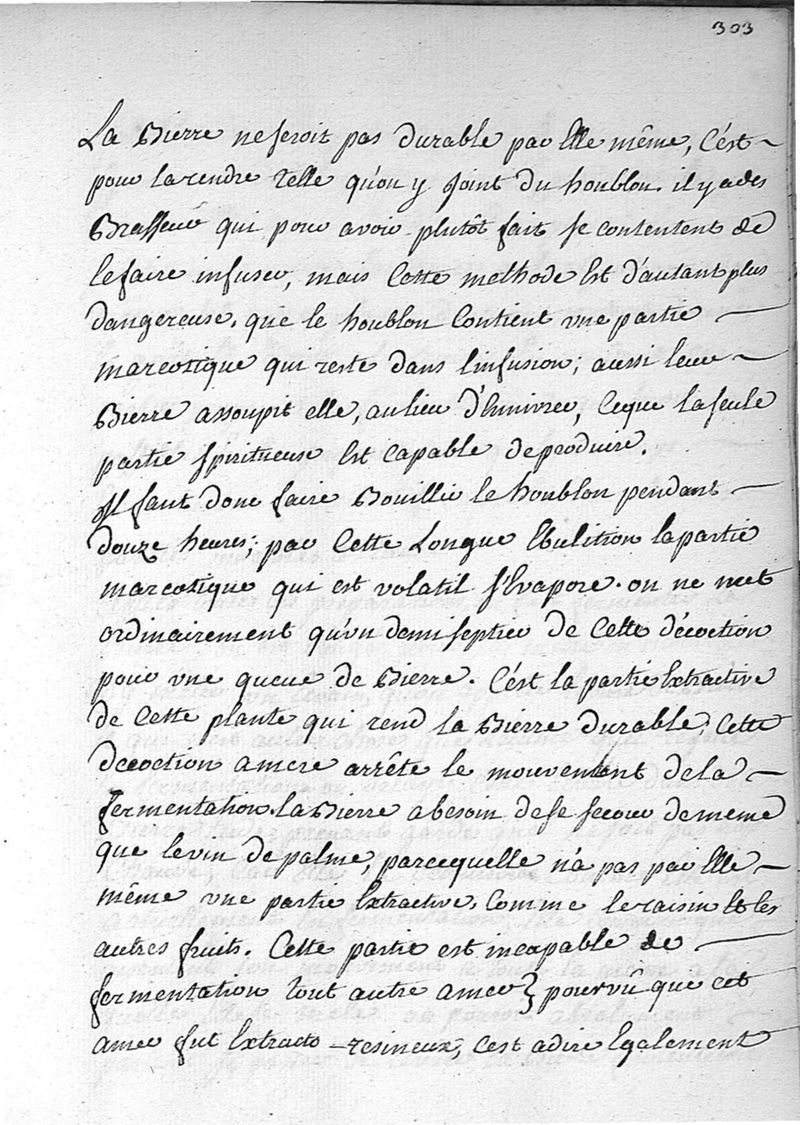 303
La Bierre ne seroit pas durable par Elle même, C'est
pour la rendre telle qu'on y joint du houblon. il y a des
Brasseur qui pour avoir plutôt fait se contentent de
le faire infuser, mais Cette methode Est d'autant plus
dangereuse. que le houblon Contient une partie
marcotique qui reste dans l'infusion; aussi leur
Bierre assoupit elle, au lieu d'Ennivrer, Ce que la seule
partie spiritueuse Est Capable de produire.
Il faut donc faire Bouillir le houblon pendant
douze heures; par Cette Longue Ebulition la partie
marcotique qui est volatil s'Evapore. on ne met
ordinairement qu'un demi septier de Cette décoction
pour une queue de Bierre. C'est la partie Extractive
de Cette plante qui rend la Bierre durable, Cette
decoction amere arrête le mouvement de la
fermentation. la Bierre a besoin de se secour de meme
que le vin de palme, parcequelle n'a pas par Elle
même une partie Extractive, Comme le raisin et les
autres fruits. Cette partie est incapable de
fermentation tout autre amer pourvû que cet
amer fut Extracto-resineux, c'est a dire Egalement